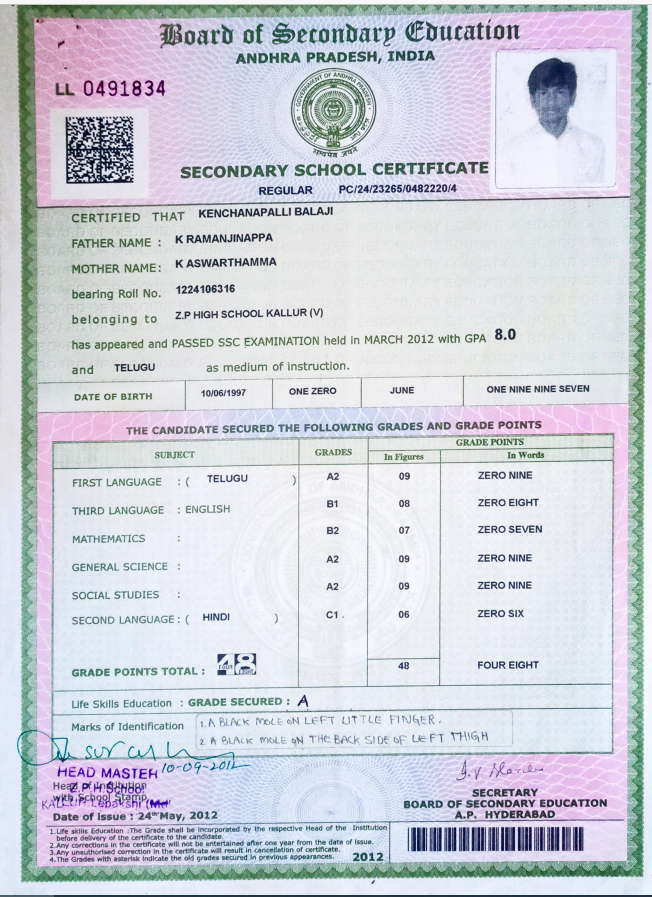 Board of Secondary Education
ANDHRA PRADESH, INDIA
LL 0491834
GOVERNMENT OF ANDHRA PRADESH
सत्यमेव जयते
SECONDARY SCHOOL CERTIFICATE
REGULAR PC/24/23265/0482220/4
CERTIFIED THAT KENCHANAPALLI BALAJI
FATHER NAME : K RAMANJINAPPA
MOTHER NAME: K ASWARTHAMMA
bearing Roll No. 1224106316
belonging to Z.P HIGH SCHOOL KALLUR (V)
has appeared and PASSED SSC EXAMINATION held in MARCH 2012 with GPA 8.0
and TELUGU as medium of instruction.
DATE OF BIRTH 10/06/1997 ONE ZERO JUNE ONE NINE NINE SEVEN
THE CANDIDATE SECURED THE FOLLOWING GRADES AND GRADE POINTS
SUBJECT GRADES GRADE POINTS
In Figures In Words
FIRST LANGUAGE : ( TELUGU ) A2 09 ZERO NINE
THIRD LANGUAGE : ENGLISH B1 08 ZERO EIGHT
MATHEMATICS : B2 07 ZERO SEVEN
GENERAL SCIENCE : A2 09 ZERO NINE
SOCIAL STUDIES : A2 09 ZERO NINE
SECOND LANGUAGE : ( HINDI ) C1 . 06 ZERO SIX
GRADE POINTS TOTAL : 48 FOUR EIGHT 48 FOUR EIGHT
Life Skills Education : GRADE SECURED : A
Marks of Identification 1. A BLACK MOLE ON LEFT LITTLE FINGER.
2 A BLACK MOLE ON THE BACK SIDE OF LEFT THIGH
10-09-2012
HEAD MASTER
Head of Institution
Z.P.H.School
with School Stamp
KALLUR Lepakshi
Date of issue : 24th May, 2012
SECRETARY
BOARD OF SECONDARY EDUCATION
A.P. HYDERABAD
1.Life skills Education :The Grade shall be incorporated by the respective Head of the Institution
before delivery of the certificate to the candidate.
2.Any corrections in the certificate will not be entertained after one year from the date of issue.
3.Any unauthorised correction in the certificate will result in cancellation of certificate.
4.The Grades with asterisk indicate the old grades secured in previous appearances. 2012